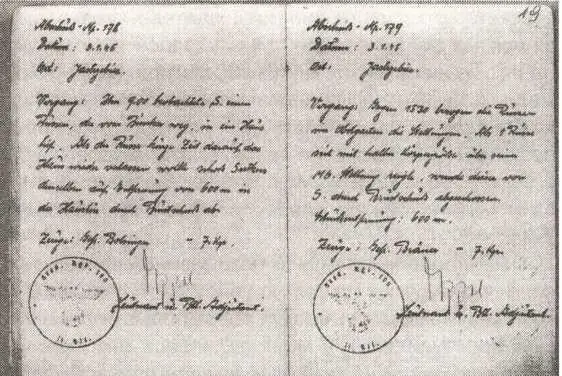 Abschuß-Nr. 178
Datum: 3.1.45
Ort: Jastrzebie.
Vorgang: Um 9.00 beobachtete S. einen
Russen, der vom Bunker weg, in ein Haus
lief. Als der Russe kurze Zeit darauf das
Haus wieder verlassen wollte schoß Sutkus
denselben auf Entfernung von 600 m in
der Haustür durch Brustschuß ab.
Zeuge: Gef. - 7. Kp.
Leutnant u. Btl. Adjutant.
19
Abschuß-Nr. 179
Datum: 3.1.45
Ort: Jastrzebie.
Vorgang: Gegen 1530 bezogen die Russen
im Obstgarten die Stellungen. Als 1 Russe
sich mit halber Körpergröße über seine
M.G. Stellung zeigte, wurde dieser von
S. durch Brustschuß abgeschossen.
Schußentfernung: 600 m.
Zeuge: Gef. - 7. Kp.
Leutnant u. Btl. Adjutant.